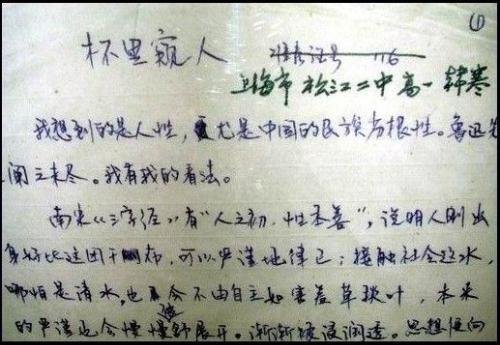 ①
杯里窥人
准考证号 116
上海市松江二中高一 韩寒
我想到的是人性，尤是中国的民族劣根性。鲁迅先
阐之未尽。我有我的看法。
南宋《三字经》有"人之初，性本善"，说明人刚出
身好比这团干布，可以严谨地律己；接触社会这水，
哪怕是清水，也会不由自主如害羞草敛叶，本来
的严谨也会慢慢舒展开。渐渐被浸润透。思想便向